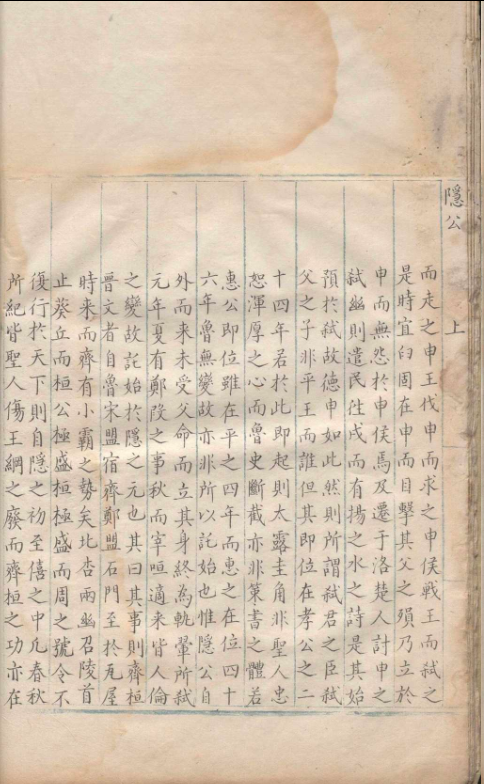 隱公 上
而走之申王伐申而求之申侯戰王而弑之
是時宜臼固在申而目擊其父之殞乃立於
申而無怨於申侯焉及遷于洛楚人討申之
弑幽則遣民徃戍而有揚之水之詩是其始
預於弑故德申如此然則所謂弑君之臣弑
父之子非平王而誰但其即位在孝公之二
十四年若於此即起則太露圭角非聖人忠
恕渾厚之心而魯史斷截亦非策書之體若
惠公即位雖在平之四年而惠之在位四十
六年魯無變故亦非所以託始也惟隱公自
外而来未受父命而立其身終為軌翬所弑
元年夏有鄭段之事秋而宰咺適来皆人倫
之變故託始於隱之元也其曰其事則齊桓
晉文者自魯宋盟宿齊鄭盟石門至於瓦屋
時来而齊有小霸之勢矣北杏兩幽召陵首
止葵丘而桓公極盛桓極盛而周之號令不
復行於天下則自隱之初至僖之中凢春秋
所紀皆聖人傷王綱之廢而齊桓之功亦在